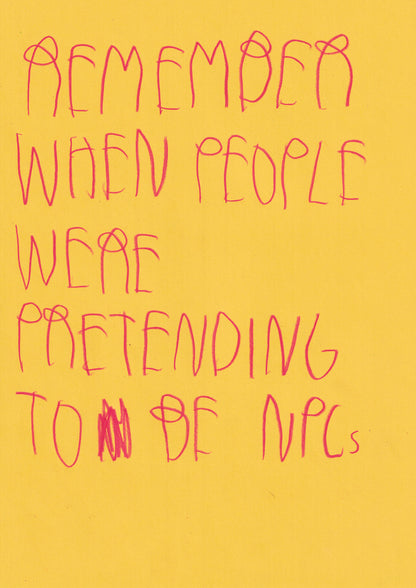 REMEMBER
WHEN PEOPLE
WERE
PRETENDING
TO BE NPCs